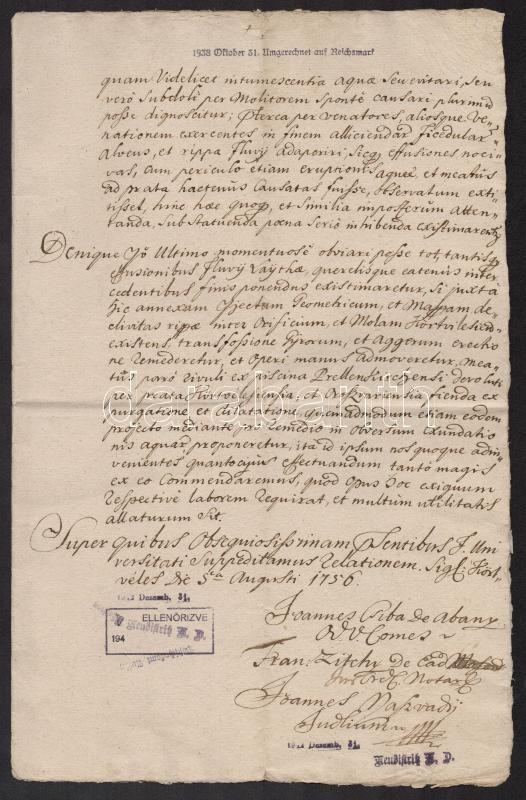 1938 Oktober 31. Umgerechnet auf Reichsmark
quam Videlicet intumescentia aquae seu evitari, seu
verò Subdoli per Molitorem Spontè causari plurimum
posse dignoscitur; Pterea per venatores, aliosque Ve-
nationem exercentes in finem alliciendar ficedular
Alveus, et rippae fluvÿ adaperiri, sicq effusiones noci-
vas, cum periculô etiam eruptionis aquae et meatus
ad prata hactenus Causatas fuisse, observatum exti-
tisset, hinc hae quoq, et Similia imposterum atten-
tanda, Sub Statuenda poena Seriò inhibenda existimarent
Denique Xô Ultimo momentuosè obviari posse tot, tantisq
effusionibus fluvÿ Vaÿthae, querelisque eatenus inter
cedentibus finis ponendus existimaretur, Si juxta
hic annexam Geometricum, et Mappam de-
clivitas rippae inter Orificium, et Molam
existens, transfossione Gÿrorum, et Aggerum erectio
ne remederetur, et operi manus admoveretur, Mea-
tus parò rivuli ex piscina devoluti
per prata fienda ex
purgatione et dilatatione, quemadmodum etiam eodem
projecto mediante pro remedio in obversum exundatio
nis aquar proponeretur, ita id ipsum nos quoque adin-
venientes quantocÿus effectuandum tantò magis
ex eo Commendaremus, quod opus hoc exiguum
respectivè laborem requirat, et multum utilitatis
allaturum Sit.
Super quibus Obsequiosissimam Psentibus J. Uni
versitati Suppeditamus Relationem. Sigl:
véles Die 5ta Augusti 1756.
darabanth
1944 Dezemb. 31.
ELLENŐRIZVE
194
Joannes Csiba de Abany
V. Comes
Fran: Zitchy de Ead
Notar
Joannes Vaszvadÿ
Judlium
1944 Dezemb. 31.